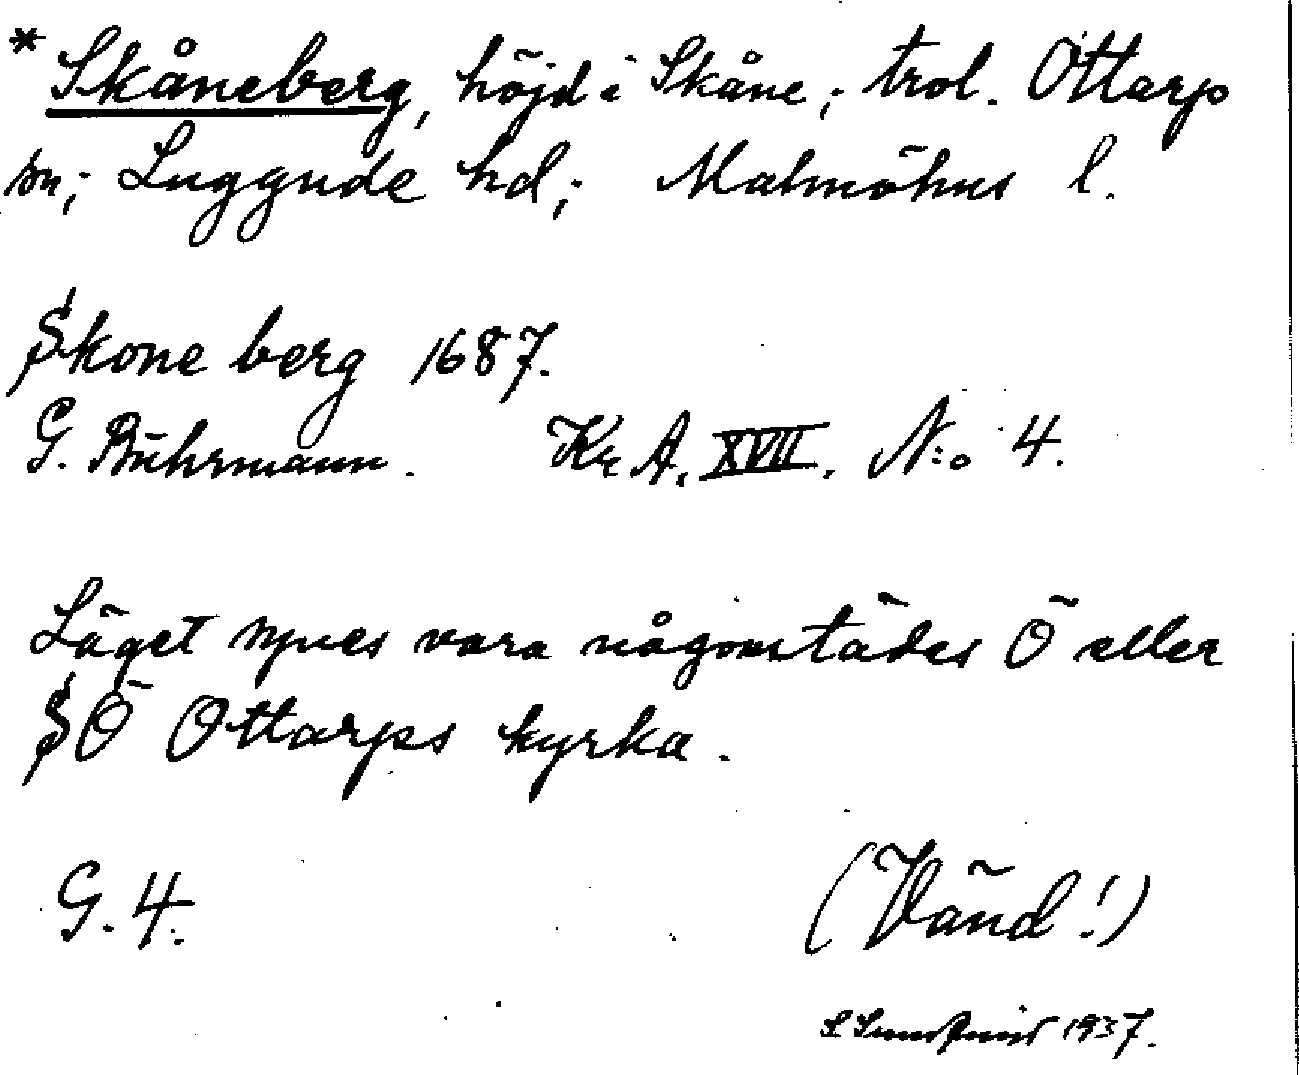 * Skåneberg, höjd i Skåne; trol. Ottarp
sn; Luggude hd; Malmöhus l.
Skone berg 1687.
G. Buhrmann. Kr A. XVII. N:o 4.
Läget synes vara någonstädes Ö eller
SÖ Ottarps kyrka.
G. 4.
(Vänd!)
1937.